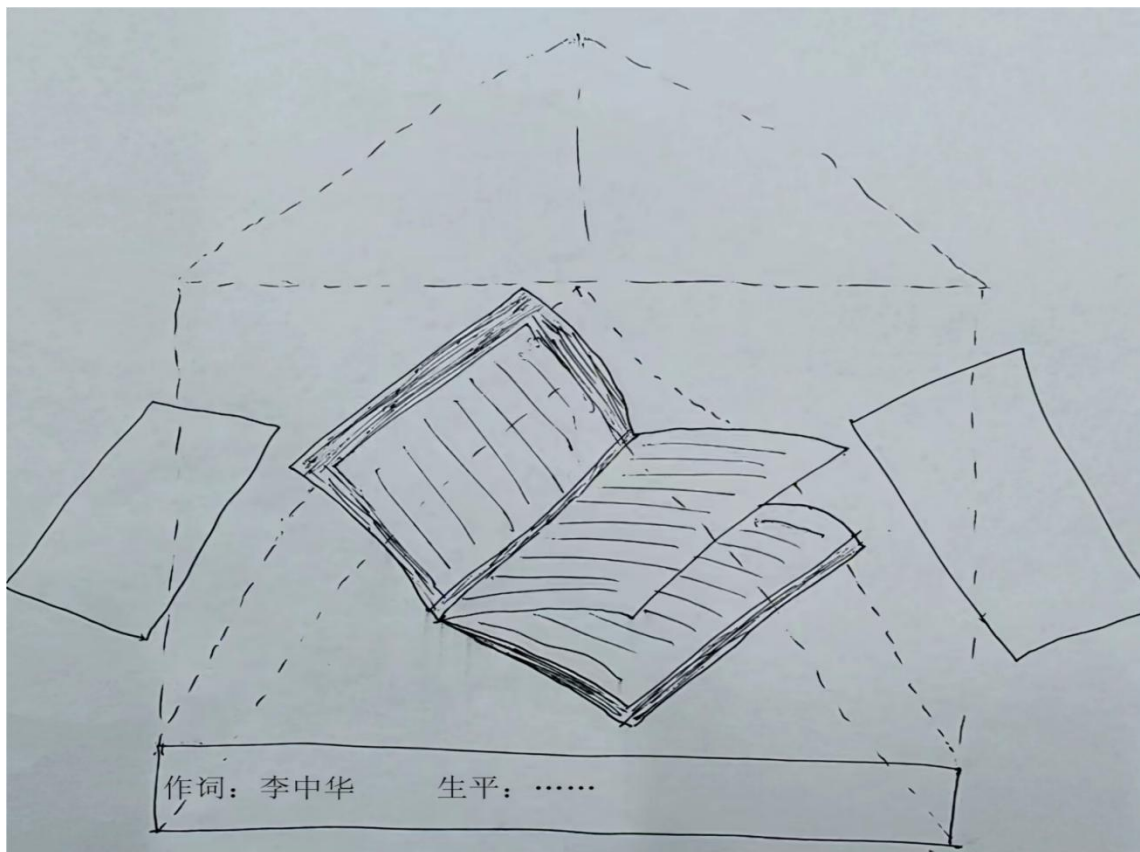 作词：李中华　　生平：……